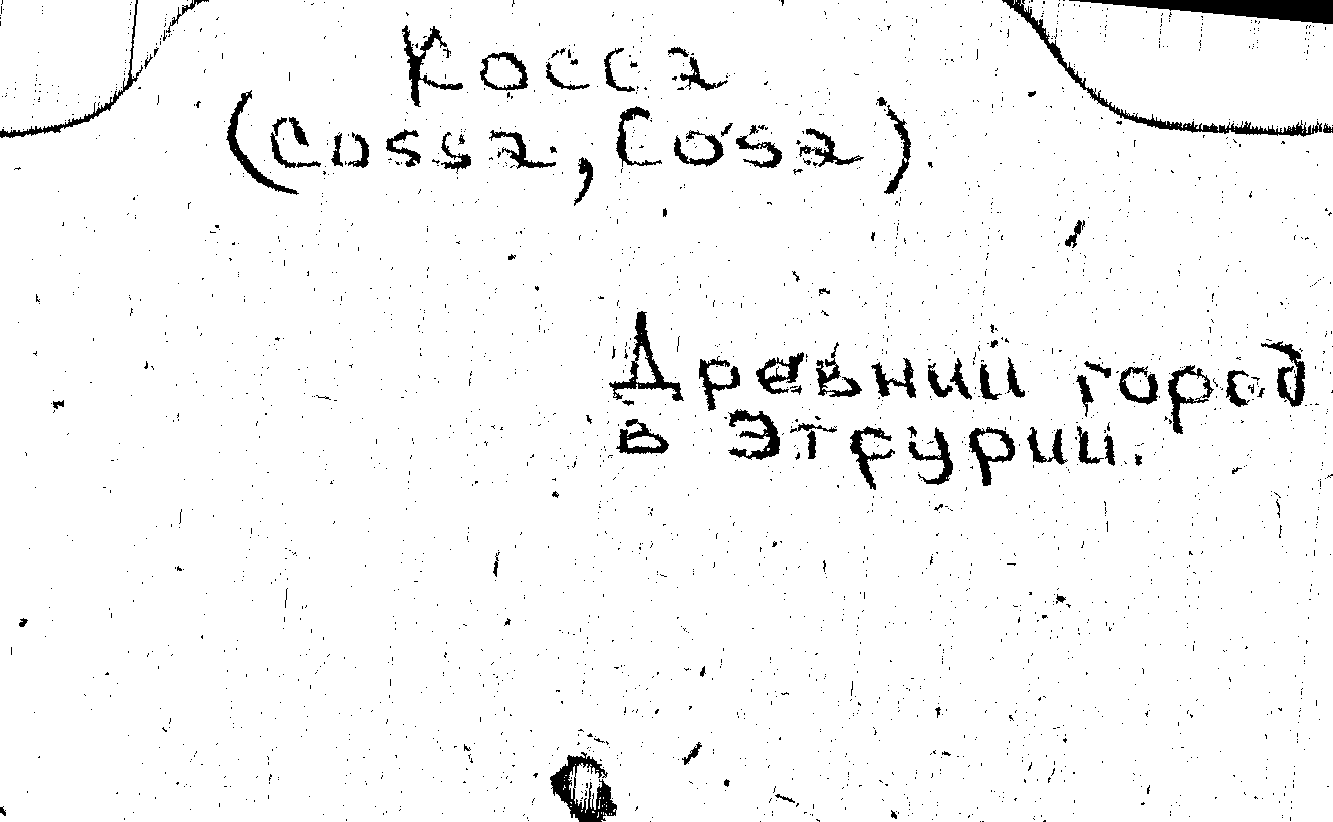 Косса
(Cossa, Cosa)
Древний город
в Этрурии.